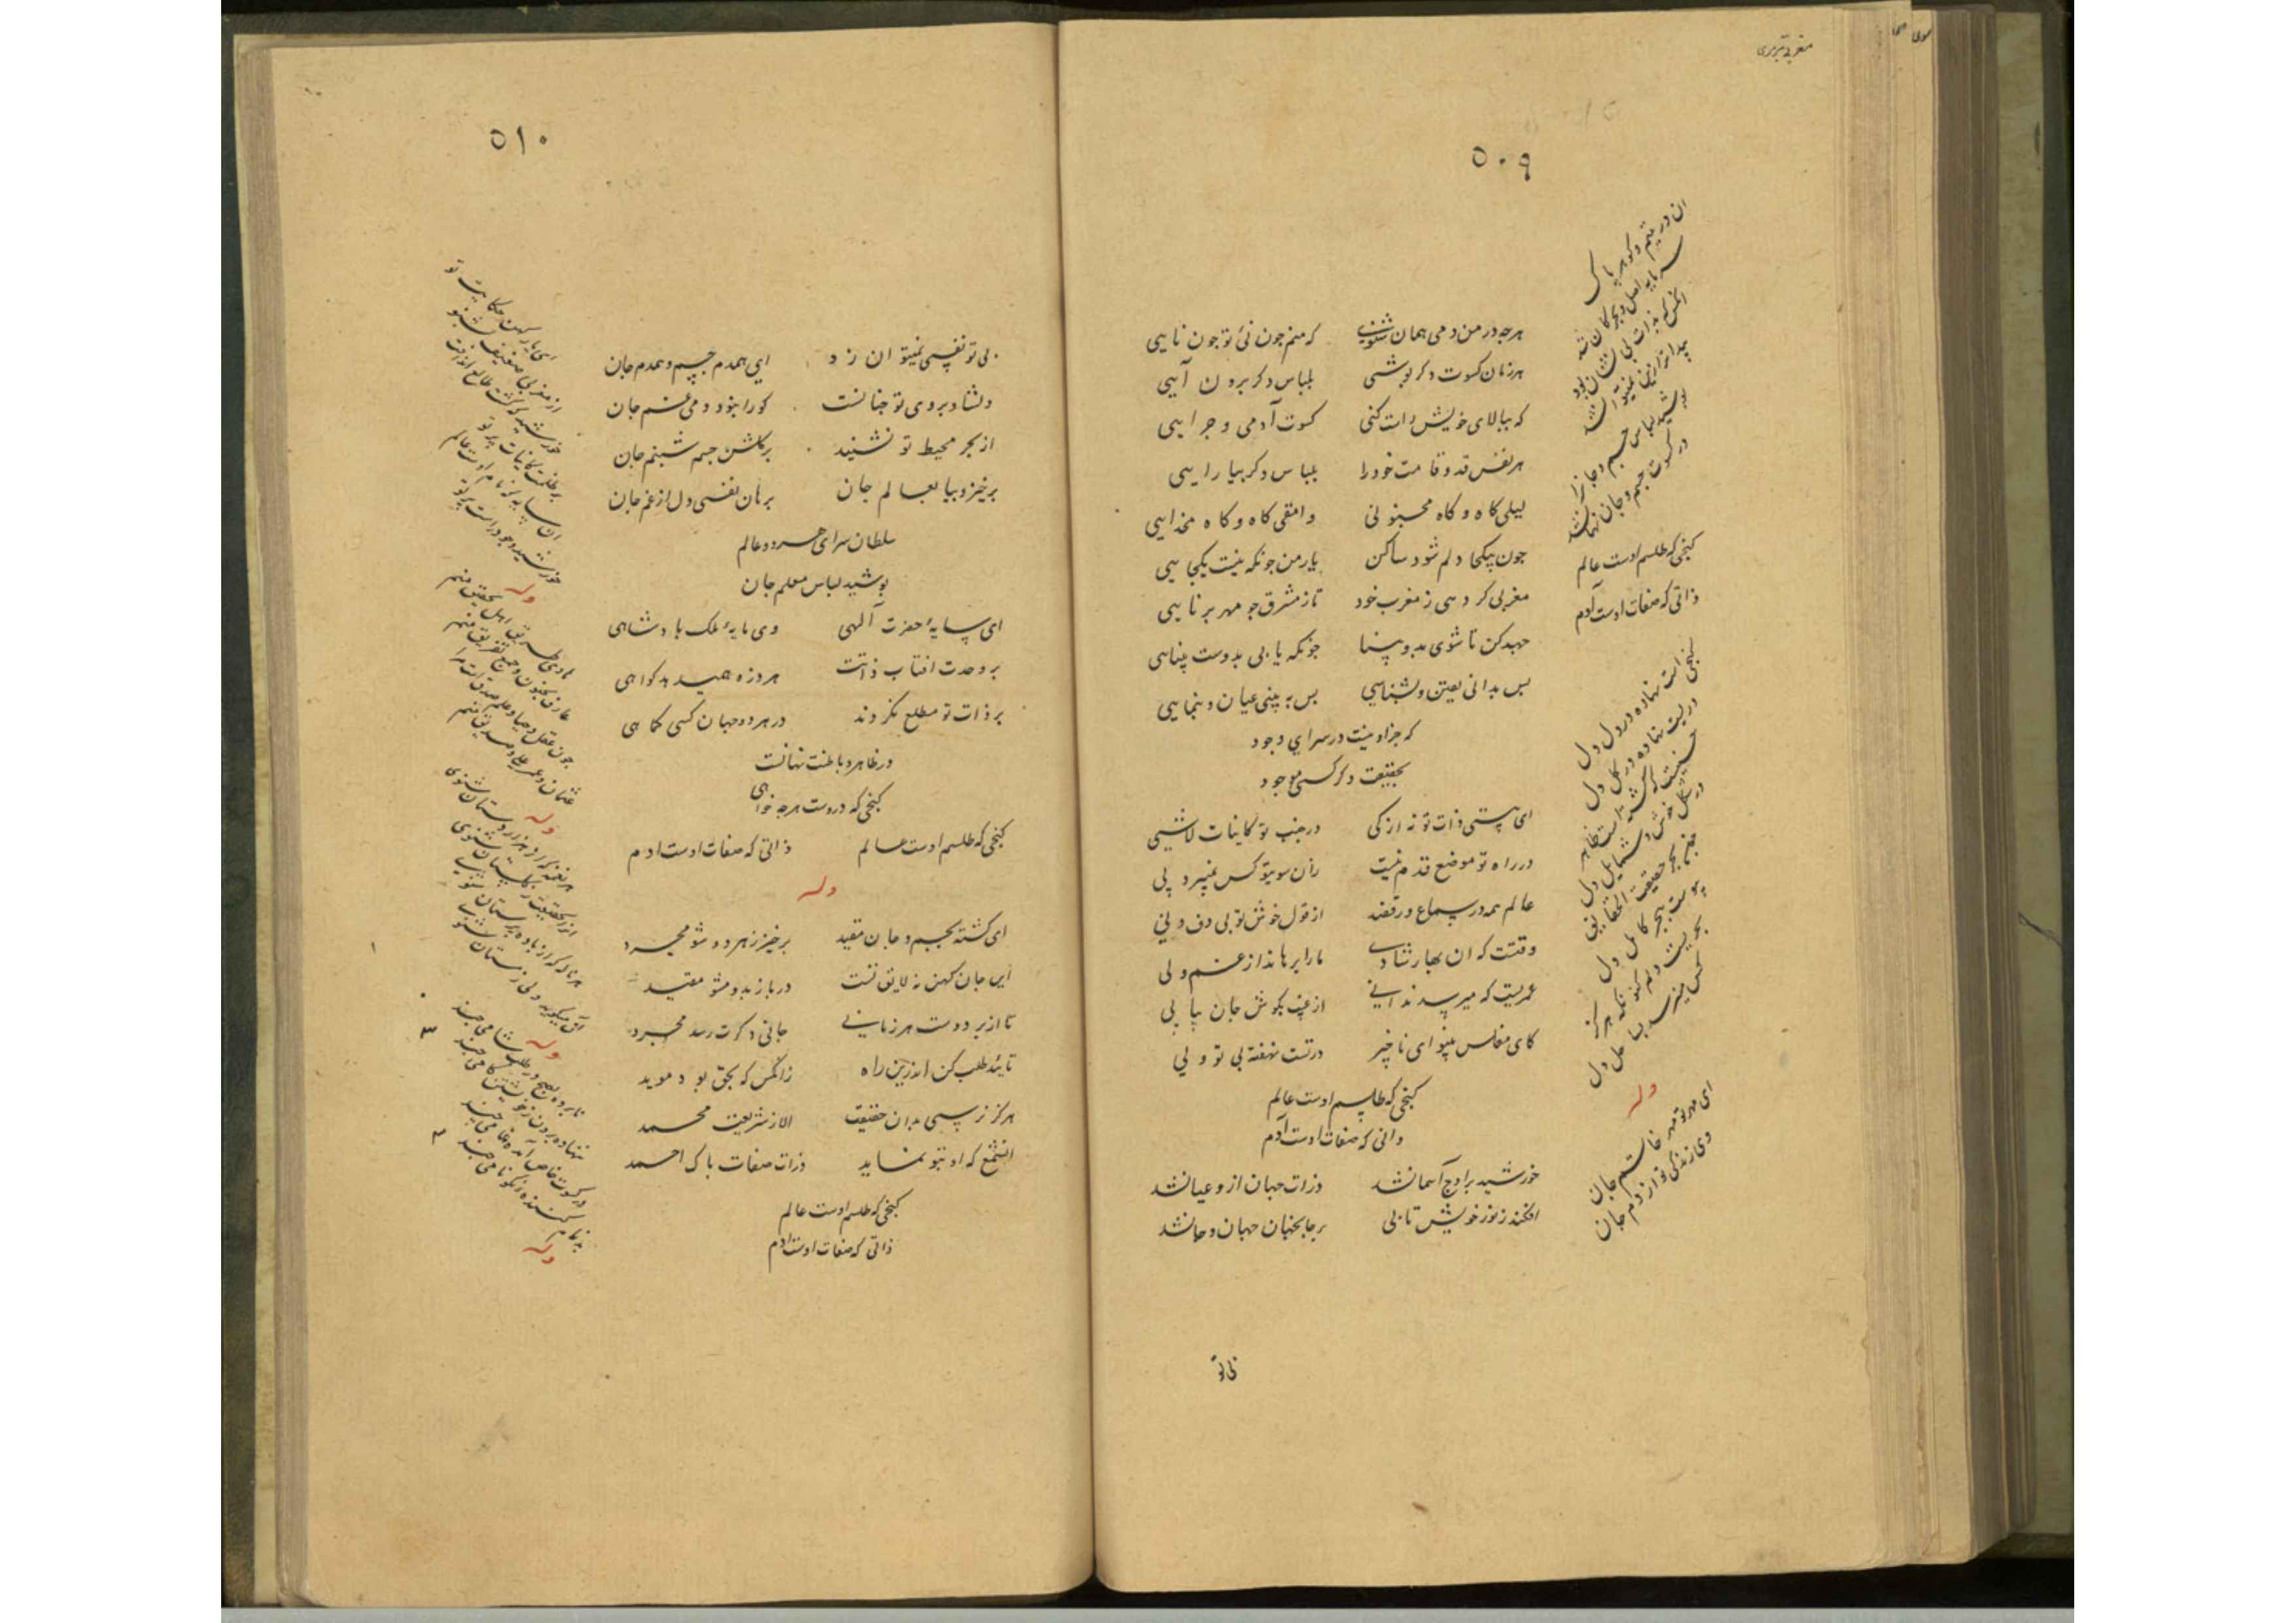 مغربی تبریزی
۵۰۹
هرچه در من دمی همان شنوی که منم چون نی تو چون نایی
هر زمان کسوت دکر پوشی بلباس دکر برون آیی
که ببالای خویش راست کنی کسوت آدمی و حوایی
هر نفس قد و قامت خود را بلباس دکر بیارایی
لیلی کاه و کاه مجنونی وامقی کاه و کاه عذرایی
چون بیکجا دلم شود ساکن یار من چونکه نیست یکجایی
مغربی کر دمی ز مغرب خود تا ز مشرق چو مهر برنایی
جهد کن تا شوی بدو بینا چونکه یابی بدوست بینایی
پس بدانی یقین و بشناسی پس به بینی عیان و بنمایی
که جز او نیست در سرای وجود
بحقیقت دکر کسی موجود
ای هستی ذات تو نه از کی در جنب تو کاینات لاشیی
در راه تو موضع قدم نیست زان سو بتو کس نمیبرد پی
عالم همه در سماع و رقصند از قول خوش تو بی دف و نی
وقتست که ان بهار شادی ما را برهاند از غم و دی
عمریست که میرسد ندایی از غیب بکوش جان پیاپی
کای مفلس بینوای ناچیز در تست نهفته بی تو و پی
کنجی که طلسم اوست عالم
ذاتی که صفات اوست آدم
خورشید بر اوج آسمان شد ذرات جهان ازو عیان شد
افکند ز نور خویش تابی بر جابجهان جهان و جان شد
ان در یتیم و کوهر پاک
سرمایه اصل و بحر کان شد
انکس که بذات بی نشان بود
پیدا تر ازین نمیتوان شد
پوشید لباس جسم و جان را
در کسوت جسم و جان نهان شد
کنجی که طلسم اوست عالم
ذاتی که صفات اوست آدم
کنجی است نهاده در دل دل
دریست نهاده در کل دل
حسنیست که کشته است ظاهر
در شکل خوش و شمایل دل
مجمع بحر حقیقت الحقایق
پیوست ببحر کامل دل
بحریست دلم کنون که هرکز
کس می نرسد بساحل دل
وله
ای مهر تو مهر خاتم جان
وی زندکی تو از دم جان
بی تو
۵۱۰
بی تو نفسی نمیتوان زد ای همدم جسم و همدم جان
دلشاد بروی تو چنانست کو را نبود دمی غم جان
از بحر محیط تو نشیند بر کلشن جسم شبنم جان
برخیز و بیا بعالم جان برهان نفسی دل از غم جان
سلطان سرای هر دو عالم
پوشید لباس معلم جان
ای سایهٔ حضرت آلهی وی مایهٔ ملک پادشاهی
بر وحدت افتاب ذاتت هر ذره همی دهد کواهی
بر ذات تو مطلع نکردند در هر دو جهان کسی کماهی
در ظاهر و باطنت نهانست
کنجی که دروست هرچه خواهی
کنجی که طلسم اوست عالم ذاتی که صفات اوست ادم
وله
ای کشته بجسم و جان مقید برخیز ز هر دو شو مجرد
این جان کهن نه لایق تست در باز بدو مشو مقید
تا از بر دوست هر زمانی جانی دکرت رسد مجرد
تایید طلب کن اندرین راه زانکس که بحق بود موید
هرکز نرسی بدان حقیقت الا ز شریعت محمد
ان شمع که او بتو نماید ذرات صفات پاک احمد
کنجی که طلسم اوست عالم
ذاتی که صفات اوست ادم
ای یار کهن حکایت نو
از مغربی ضعیف بشنو
خورشید که کشت طالع از ذات
بر ظلمت کاینات پرتو
ان سایه که نام اوست عالم
خورشید وجود راست پرتو
وله
هادی طریق اهل تحقیق منم
عارف بفنون و جمع تفریق منم
چون عقل و حیا و علم و صدق است مرا
عثمان و عمر علی و صدیق منم
وله
هر نغمه که از هزار دستان شنوی
از لحقیقت ز کلستان شنوی
هر ناله که از باده پرستان شنوی
آن میکوید ولی ز مستان شنوی
وله
وله